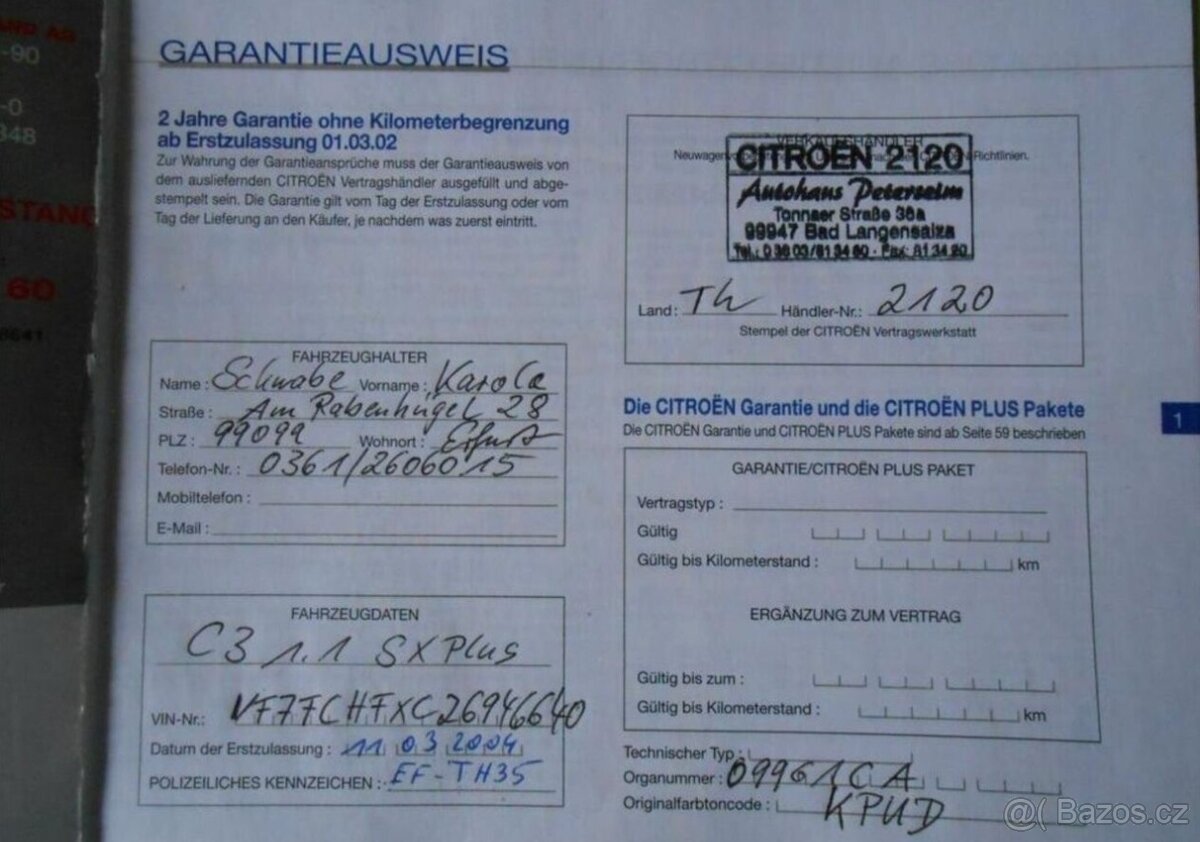 -90
-0
348
STAND
60
8641
GARANTIEAUSWEIS
2 Jahre Garantie ohne Kilometerbegrenzung
ab Erstzulassung 01.03.02
Zur Wahrung der Garantieansprüche muss der Garantieausweis von
dem ausliefernden CITROËN Vertragshändler ausgefüllt und abge-
stempelt sein. Die Garantie gilt vom Tag der Erstzulassung oder vom
Tag der Lieferung an den Käufer, je nachdem was zuerst eintritt.
FAHRZEUGHALTER
Name : Schwabe Vorname : Karola
Straße : Am Rabenhügel 28
PLZ : 99099 Wohnort : Erfurt
Telefon-Nr. : 0361/2606015
Mobiltelefon :
E-Mail :
FAHRZEUGDATEN
C3 1.1 SX Plus
VIN-Nr.: VF7FCHFXC26946640
Datum der Erstzulassung : 11 03 2004
POLIZEILICHES KENNZEICHEN : EF-TH35
VERKAUFSHÄNDLER
Neuwagen Richtlinien.
CITROËN 2120
Autohaus Peterseim
Tonnaer Straße 36a
99947 Bad Langensalza
Tel.: 0 36 03/81 34 60 · Fax: 81 34 20
Land : Th Händler-Nr.: 2120
Stempel der CITROËN Vertragswerkstatt
Die CITROËN Garantie und die CITROËN PLUS Pakete
Die CITROËN Garantie und CITROËN PLUS Pakete sind ab Seite 59 beschrieben
1
GARANTIE/CITROËN PLUS PAKET
Vertragstyp :
Gültig
Gültig bis Kilometerstand : km
ERGÄNZUNG ZUM VERTRAG
Gültig bis zum :
Gültig bis Kilometerstand : km
Technischer Typ :
Organummer : 09961CA
Originalfarbtoncode : KPUD
@( Bazos.cz